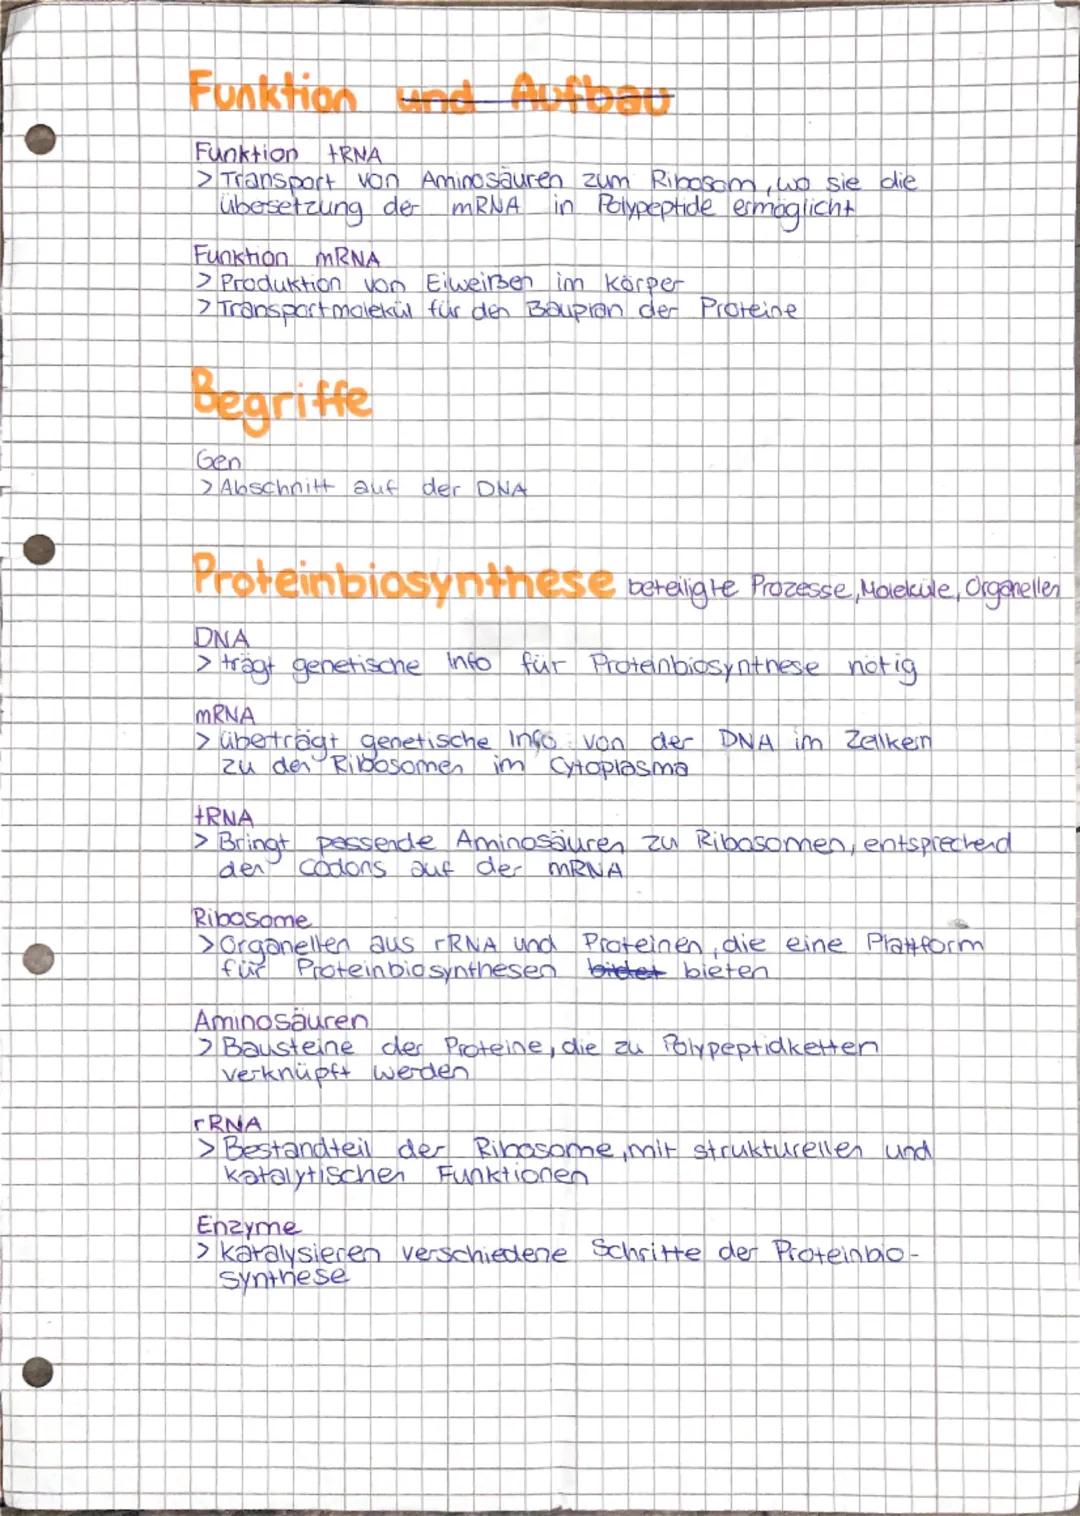 Funktion und Aufbau
Funktion tRNA
> Transport von Aminosäuren zum Ribosom, wo sie die
übesetzung der mRNA in Polypeptide ermöglicht
Funktion mRNA
> Produktion von Eiweißen im Körper
> Transportmolekül für den Bauplan der Proteine
Begriffe
Gen
> Abschnitt auf der DNA
Proteinbiosynthese beteiligte Prozesse, Moleküle, Organellen
DNA
> trägt genetische Info für Proteinbiosynthese nötig
mRNA
> überträgt genetische Info von der DNA im Zellkern
zu den Ribosomen im Cytoplasma
tRNA
> Bringt passende Aminosäuren zu Ribosomen, entsprechend
den Codons auf der mRNA
Ribosome
> Organellen aus rRNA und Proteinen, die eine Plattform
für Proteinbiosynthesen bildet bieten
Aminosäuren
> Bausteine der Proteine, die zu Polypeptidketten
verknüpft werden
rRNA
> Bestandteil der Ribosome, mit strukturellen und
katalytischen Funktionen
Enzyme
> katalysieren verschiedene Schritte der Proteinbio-
synthese